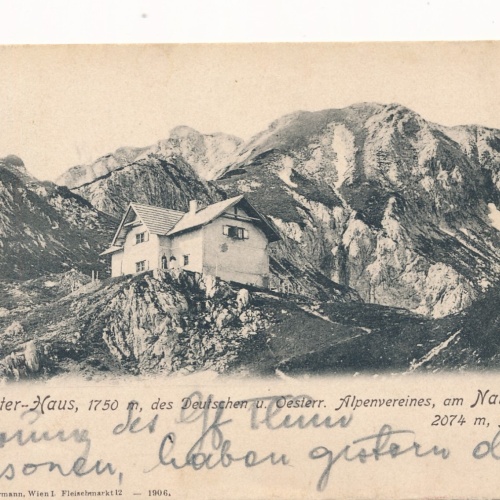 ter-Haus, 1750 m, des Deutschen u. Oesterr. Alpenvereines, am Na
2074 m,
des
sonen, haben gestern d
rmann, Wien I. Fleischmarkt 12 — 1906.